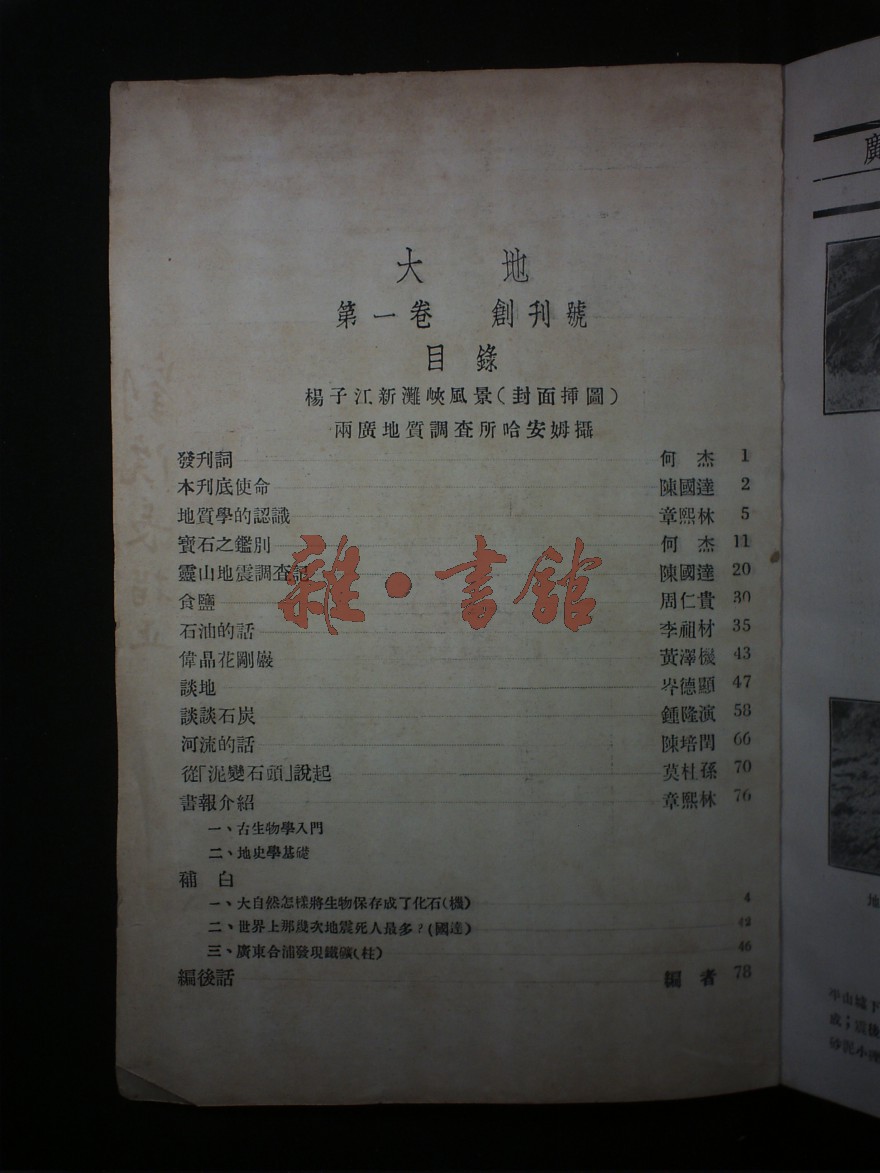 大地
第一卷 創刊號
目錄
楊子江新灘峽風景（封面挿圖）
兩廣地質調查所哈安姆攝
發刊詞 何杰 1
本刊底使命 陳國達 2
地質學的認識 章熙林 5
寶石之鑑別 何杰 11
靈山地震調查記 陳國達 20
食鹽 周仁貴 30
石油的話 李祖材 35
偉晶花剛巖 黃澤機 43
談地 岑德顯 47
談談石炭 鍾隆演 58
河流的話 陳培閏 66
從「泥變石頭」說起 莫杜孫 70
書報介紹 章熙林 76
一、古生物學入門
二、地史學基礎
補白
一、大自然怎樣將生物保存成了化石（機） 4
二、世界上那幾次地震死人最多？（國達） 42
三、廣東合浦發現鐵礦（柱） 46
編後話 編者 78
雜·書館
廣
地
平山墟下
成；震後
砂泥小